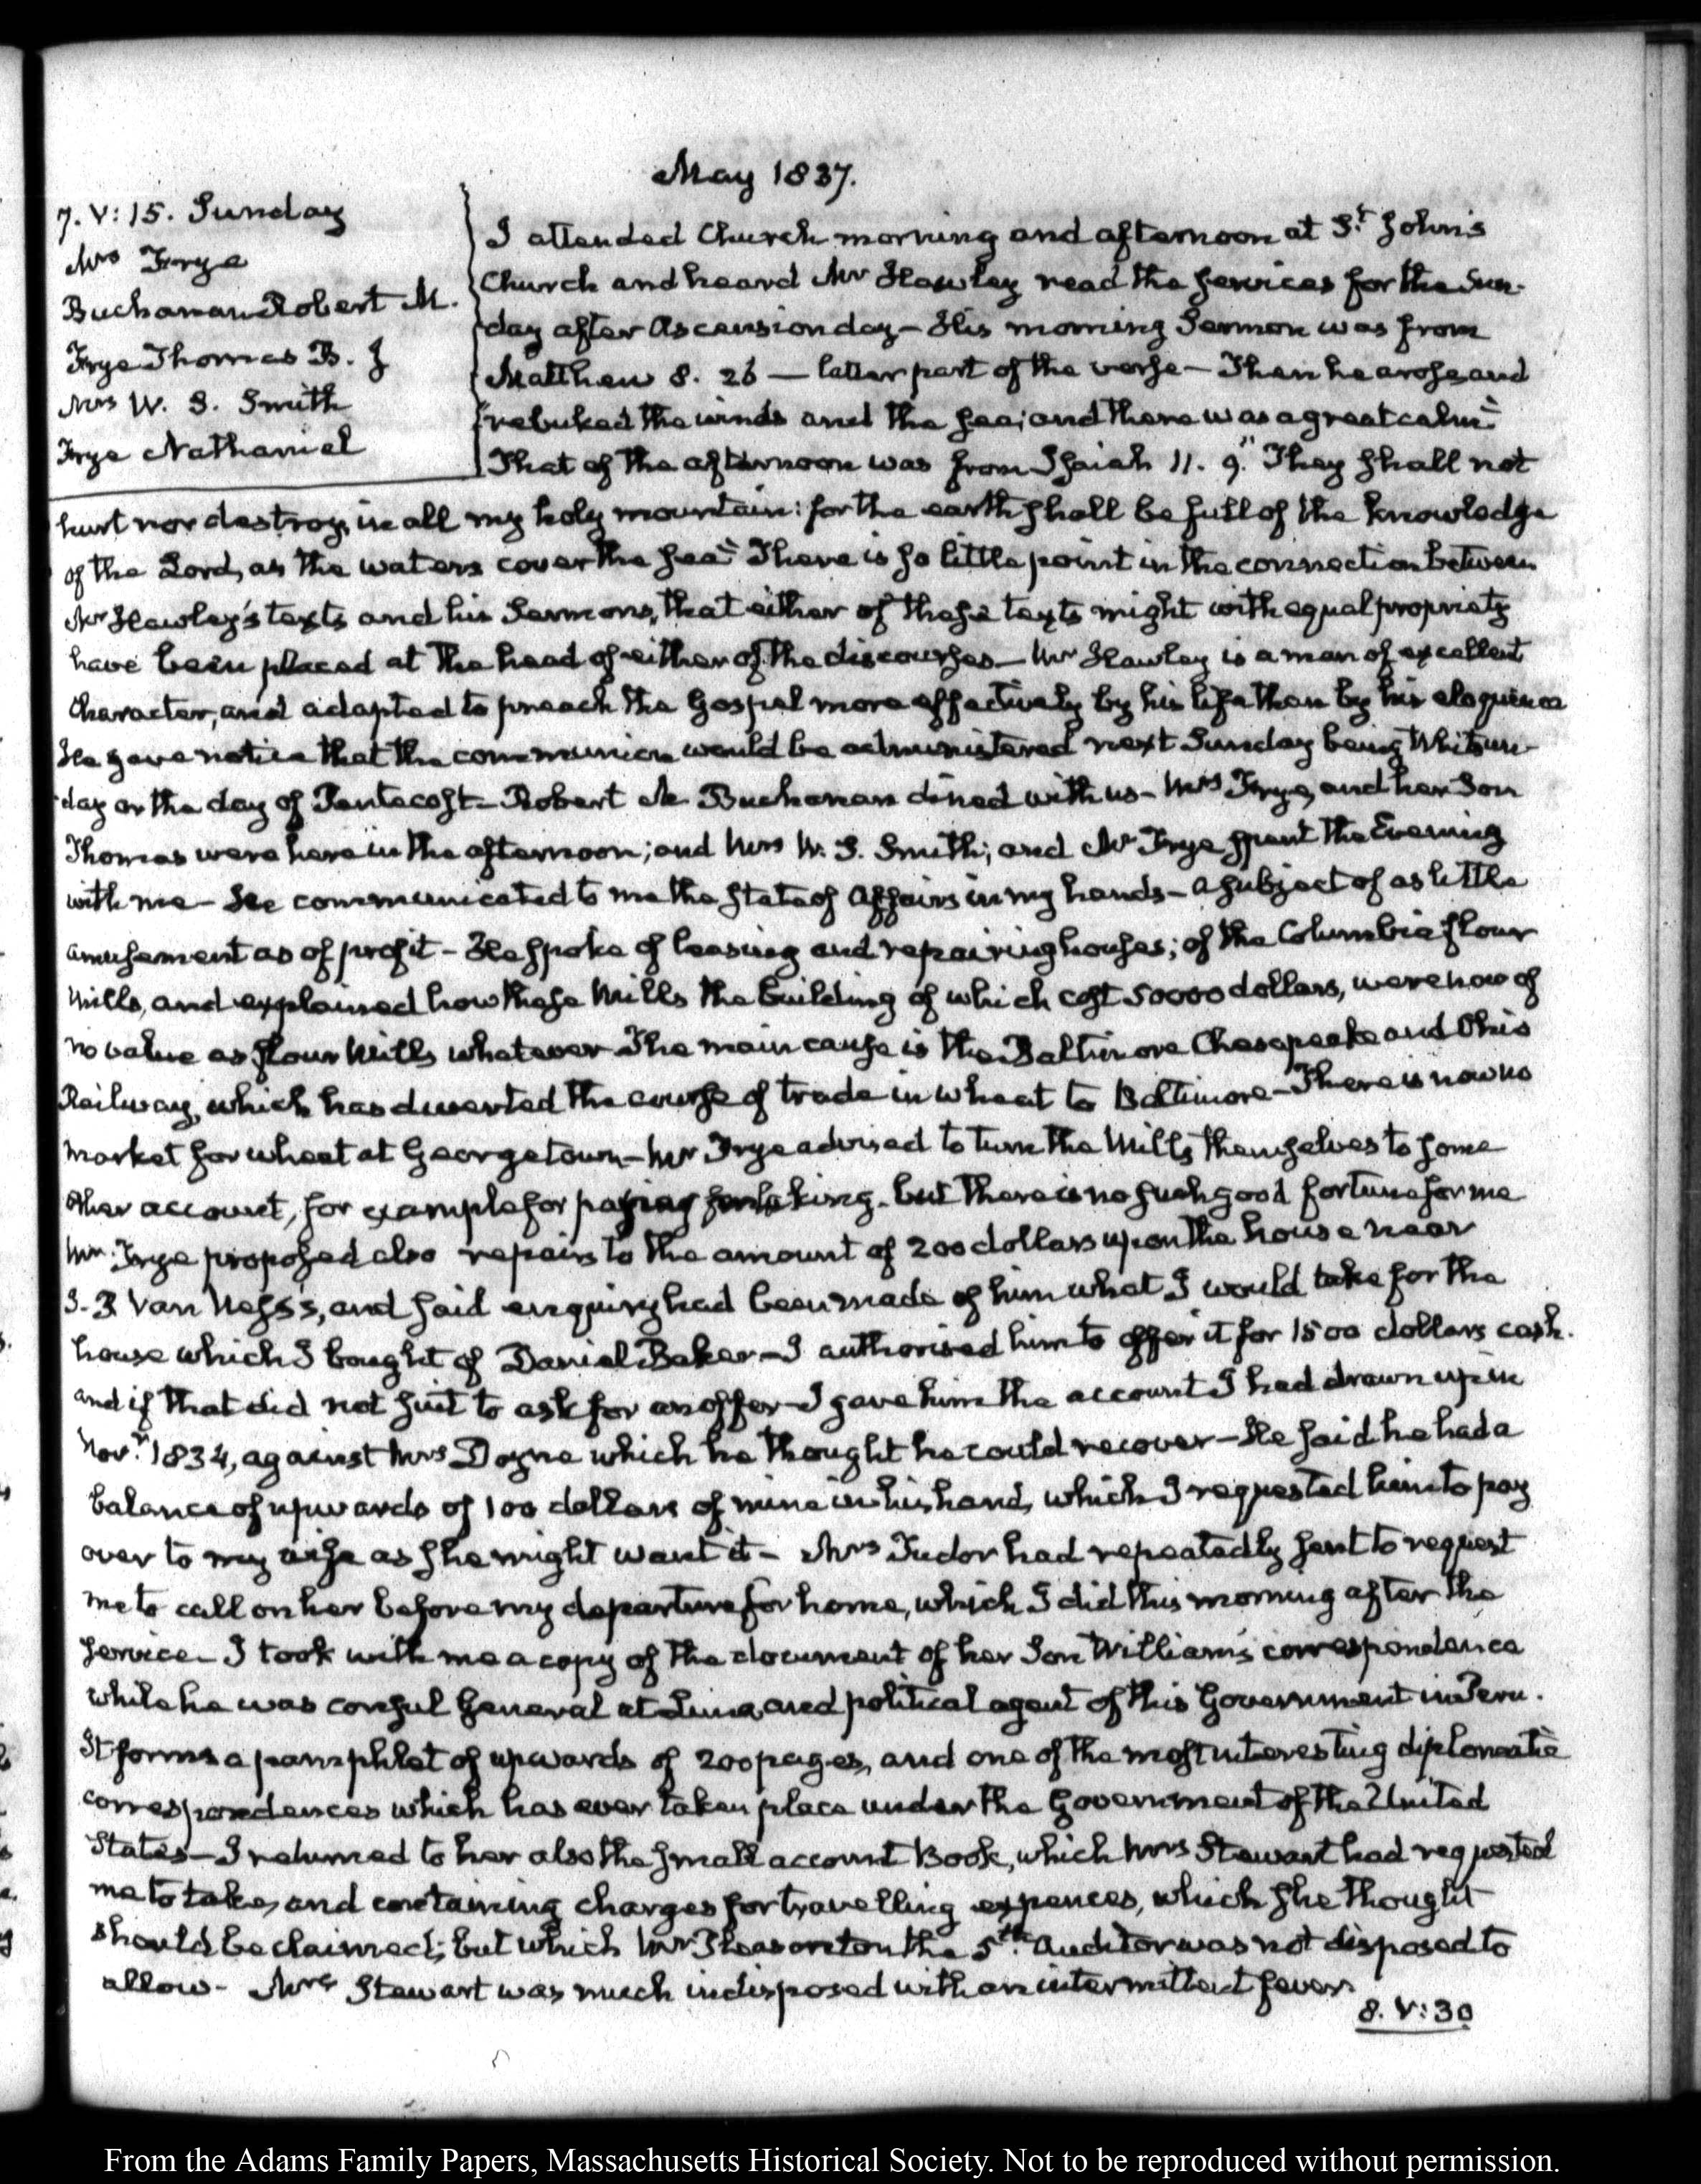 May 1837.
7. V: 15. Sunday
Mrs Frye
Buchanan Robert M.
Frye Thomas B. J
Mrs W. S. Smith
Frye Nathaniel
I attended Church morning and afternoon at St. John's
Church and heard Mr Hawley read the services for the Sun-
day after Ascension day — His morning Sermon was from
Matthew 8. 26 — latter part of the verse — Then he arose and
"rebuked the winds and the sea; and there was a great calm"
That of the afternoon was from Isaiah 11. 9. "They shall not
hurt nor destroy, in all my holy mountain: for the earth shall be full of the knowledge
of the Lord, as the waters cover the sea" There is so little point in the connection between
Mr Hawley's texts and his Sermons, that either of these texts might with equal propriety
have been placed at the head of either of the discourses — Mr Hawley is a man of excellent
character, and adapted to preach the Gospel more effectively by his life than by his eloquence
He gave notice that the communion would be administered next Sunday being Whitsun-
day or the day of Pentecost — Robert M Buchanan dined with us — Mrs Frye, and her Son
Thomas were here in the afternoon; and Mrs W. S. Smith; and Mr Frye spent the Evening
with me — He communicated to me the state of affairs in my hands — a subject of as little
amusement as of profit — He spoke of leasing and repairing houses; of the Columbia flour
Mills, and explained how these Mills the building of which cost 50000 dollars, were now of
no value as flour Mills whatever The main cause is the Baltimore Chesapeake and Ohio
Railway, which has diverted the course of trade in wheat to Baltimore — There is now no
market for wheat at Georgetown — Mr Frye advised to turn the Mills themselves to some
other account, for example for paper making. but there is no such good fortune for me
Mr. Frye proposed also repairs to the amount of 200 dollars upon the house near
J. P. Van Ness's, and said enquiry had been made of him what I would take for the
house which I bought of Daniel Baker — I authorised him to offer it for 1500 dollars cash.
and if that did not suit to ask for an offer — I gave him the account I had drawn up in
Novr. 1834, against Mrs Doyne which he thought he could recover — He said he had a
balance of upwards of 100 dollars of mine in his hand, which I requested him to pay
over to my wife as she might want it — Mrs Tudor had repeatedly sent to request
me to call on her before my departure for home, which I did this morning after the
service — I took with me a copy of the document of her Son William's correspondence
while he was consul General at Lima, and political agent of this Government in Peru.
It forms a pamphlet of upwards of 200 pages, and one of the most interesting diplomatic
correspondences which has ever taken place under the Government of the United
States — I returned to her also the small account Book, which Mrs Stewart had requested
me to take, and containing charges for travelling expences, which she thought
should be claimed; but which Mr Pleasonton the 5th. Auditor was not disposed to
allow — Mrs Stewart was much indisposed with an intermittent fever.
8. V: 30
From the Adams Family Papers, Massachusetts Historical Society. Not to be reproduced without permission.